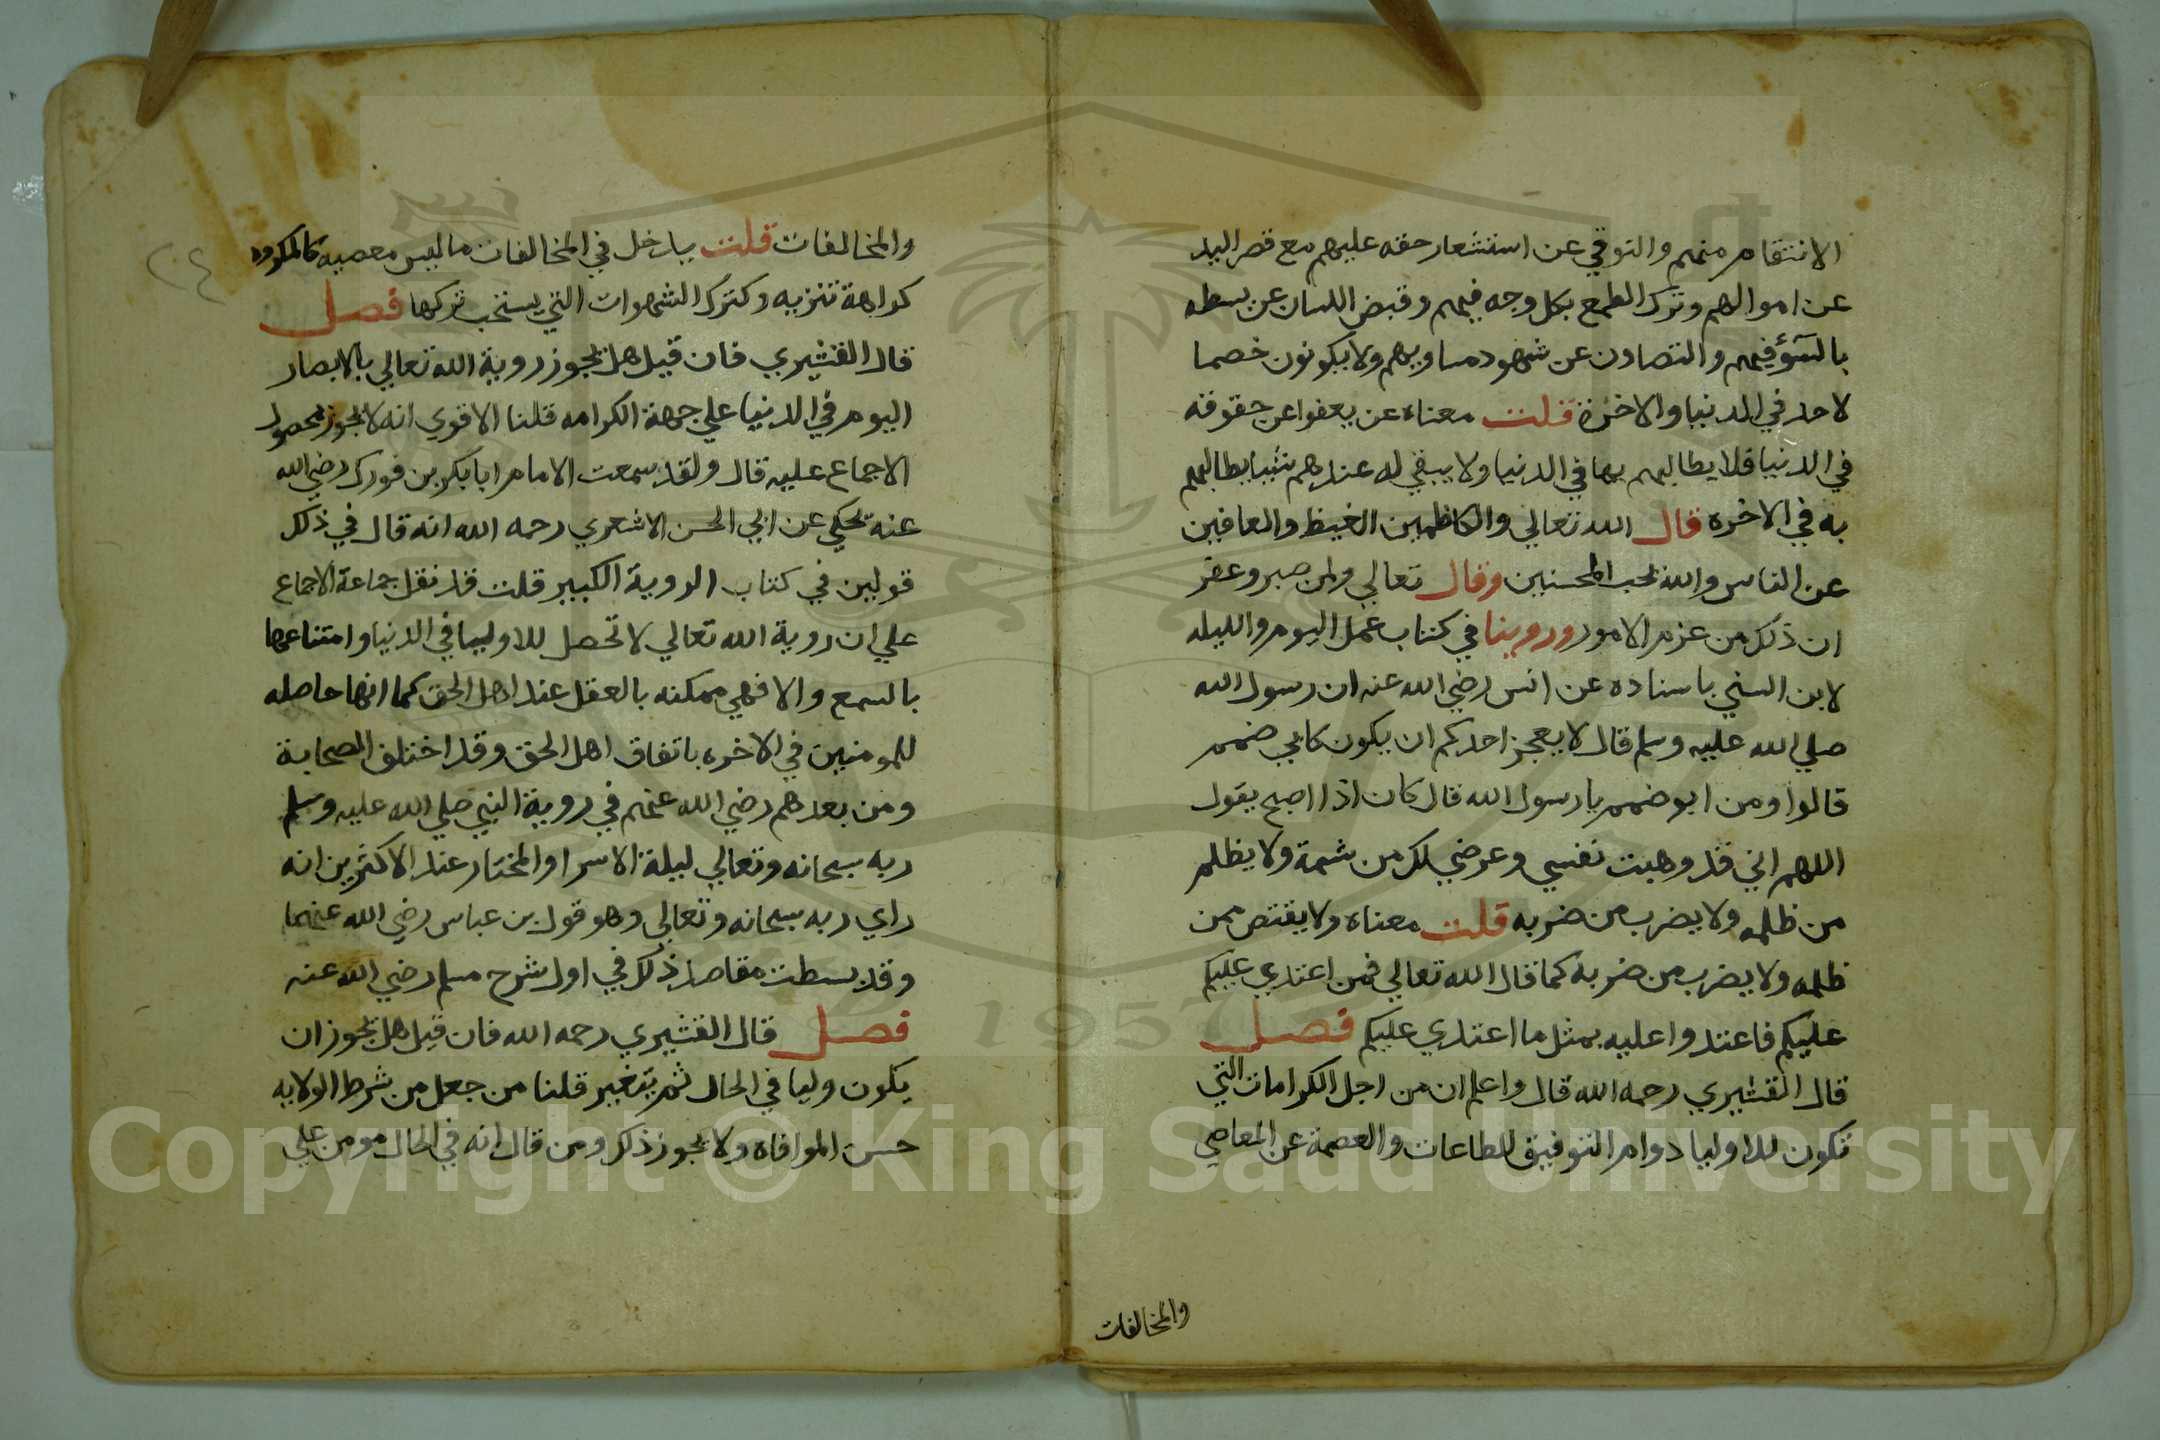 الانتقام منهم والتوقي عن استشعار حقه عليهم مع قصر اليد
عن اموالهم وترك الطمع بكل وجه فيهم وقبض اللسان عن بسطه
بالسؤ فيهم والتصاون عن شهود مساويهم ولا يكونون خصما
لاحد في الدنيا والاخرة قلت معناه عن يعفوا عن حقوقه
في الدنيا فلا يطالبهم بها في الدنيا ولا يبقي له عندهم شيا يطالبهم
به في الاخره قال الله تعالي والكاظمين الغيظ والعافين
عن الناس والله يحب المحسنين وقال تعالي ولمن صبر وغفر
ان ذلك من عزم الامور وروينا في كتاب عمل اليوم والليله
لابن السني باسناده عن انس رضي الله عنه ان رسول الله
صلي الله عليه وسلم قال لا يعجز احدكم ان يكون كابي ضمم
قالوا ومن ابو ضمم يا رسول الله قال كان اذا اصبح يقول
اللهم اني قد وهبت نفسي وعرضي لك من شمة ولا يظلم
من ظلمه ولا يضرب من ضربه قلت معناه ولا يقتص ممن
ظلمه ولا يضرب من ضربه كما قال الله تعالي فمن اعتدي عليكم
عليكم فاعتدوا عليه بمثل ما اعتدي عليكم فصل
قال القشيري رحمه الله قال واعلم ان من اجل الكرامات التي
تكون للاوليا دوام التوفيق للطاعات والعصمة عن المعاصي
والمخالفات
والمخالفات قلت يدخل في المخالفات ما ليس معصيه كالمكروه
كراهة تنزيه وكترك الشهوات التي يستحب تركها فصل
قال القشيري فان قيل هل يجوز روية الله تعالي بالابصار
اليوم في الدنيا علي جهة الكرامه قلنا الاقوي انه لا يجوز لحصول
الاجماع عليه قال ولقد سمعت الامام ابا بكر بن فورك رضي الله
عنه يحكي عن ابي الحسن الاشعري رحمه الله انه قال في ذلك
قولين في كتاب الروية الكبير قلت قد نقل جماعة الاجماع
علي ان روية الله تعالي لا تحصل للاوليا في الدنيا وامتناعها
بالسمع والا فهي ممكنه بالعقل عند اهل الحق كما انها حاصله
للمومنين في الاخره باتفاق اهل الحق وقد اختلف الصحابة
ومن بعدهم رضي الله عنهم في روية النبي صلي الله عليه وسلم
ربه سبحانه وتعالي ليلة الاسرا والمختار عند الاكثرين انه
راي ربه سبحانه وتعالي وهو قول بن عباس رضي الله عنهما
وقد بسطت مقاصد ذلك في اول شرح مسلم رضي الله عنه
فصل قال القشيري رحمه الله فان قيل هل يجوز ان
يكون وليا في الحال ثم يتغير قلنا من جعل من شرط الولايه
حسن الموافاه ولا يجوز ذلك ومن قال انه في الحال مومن علي
٢٤
1957
Copyright © King Saud University